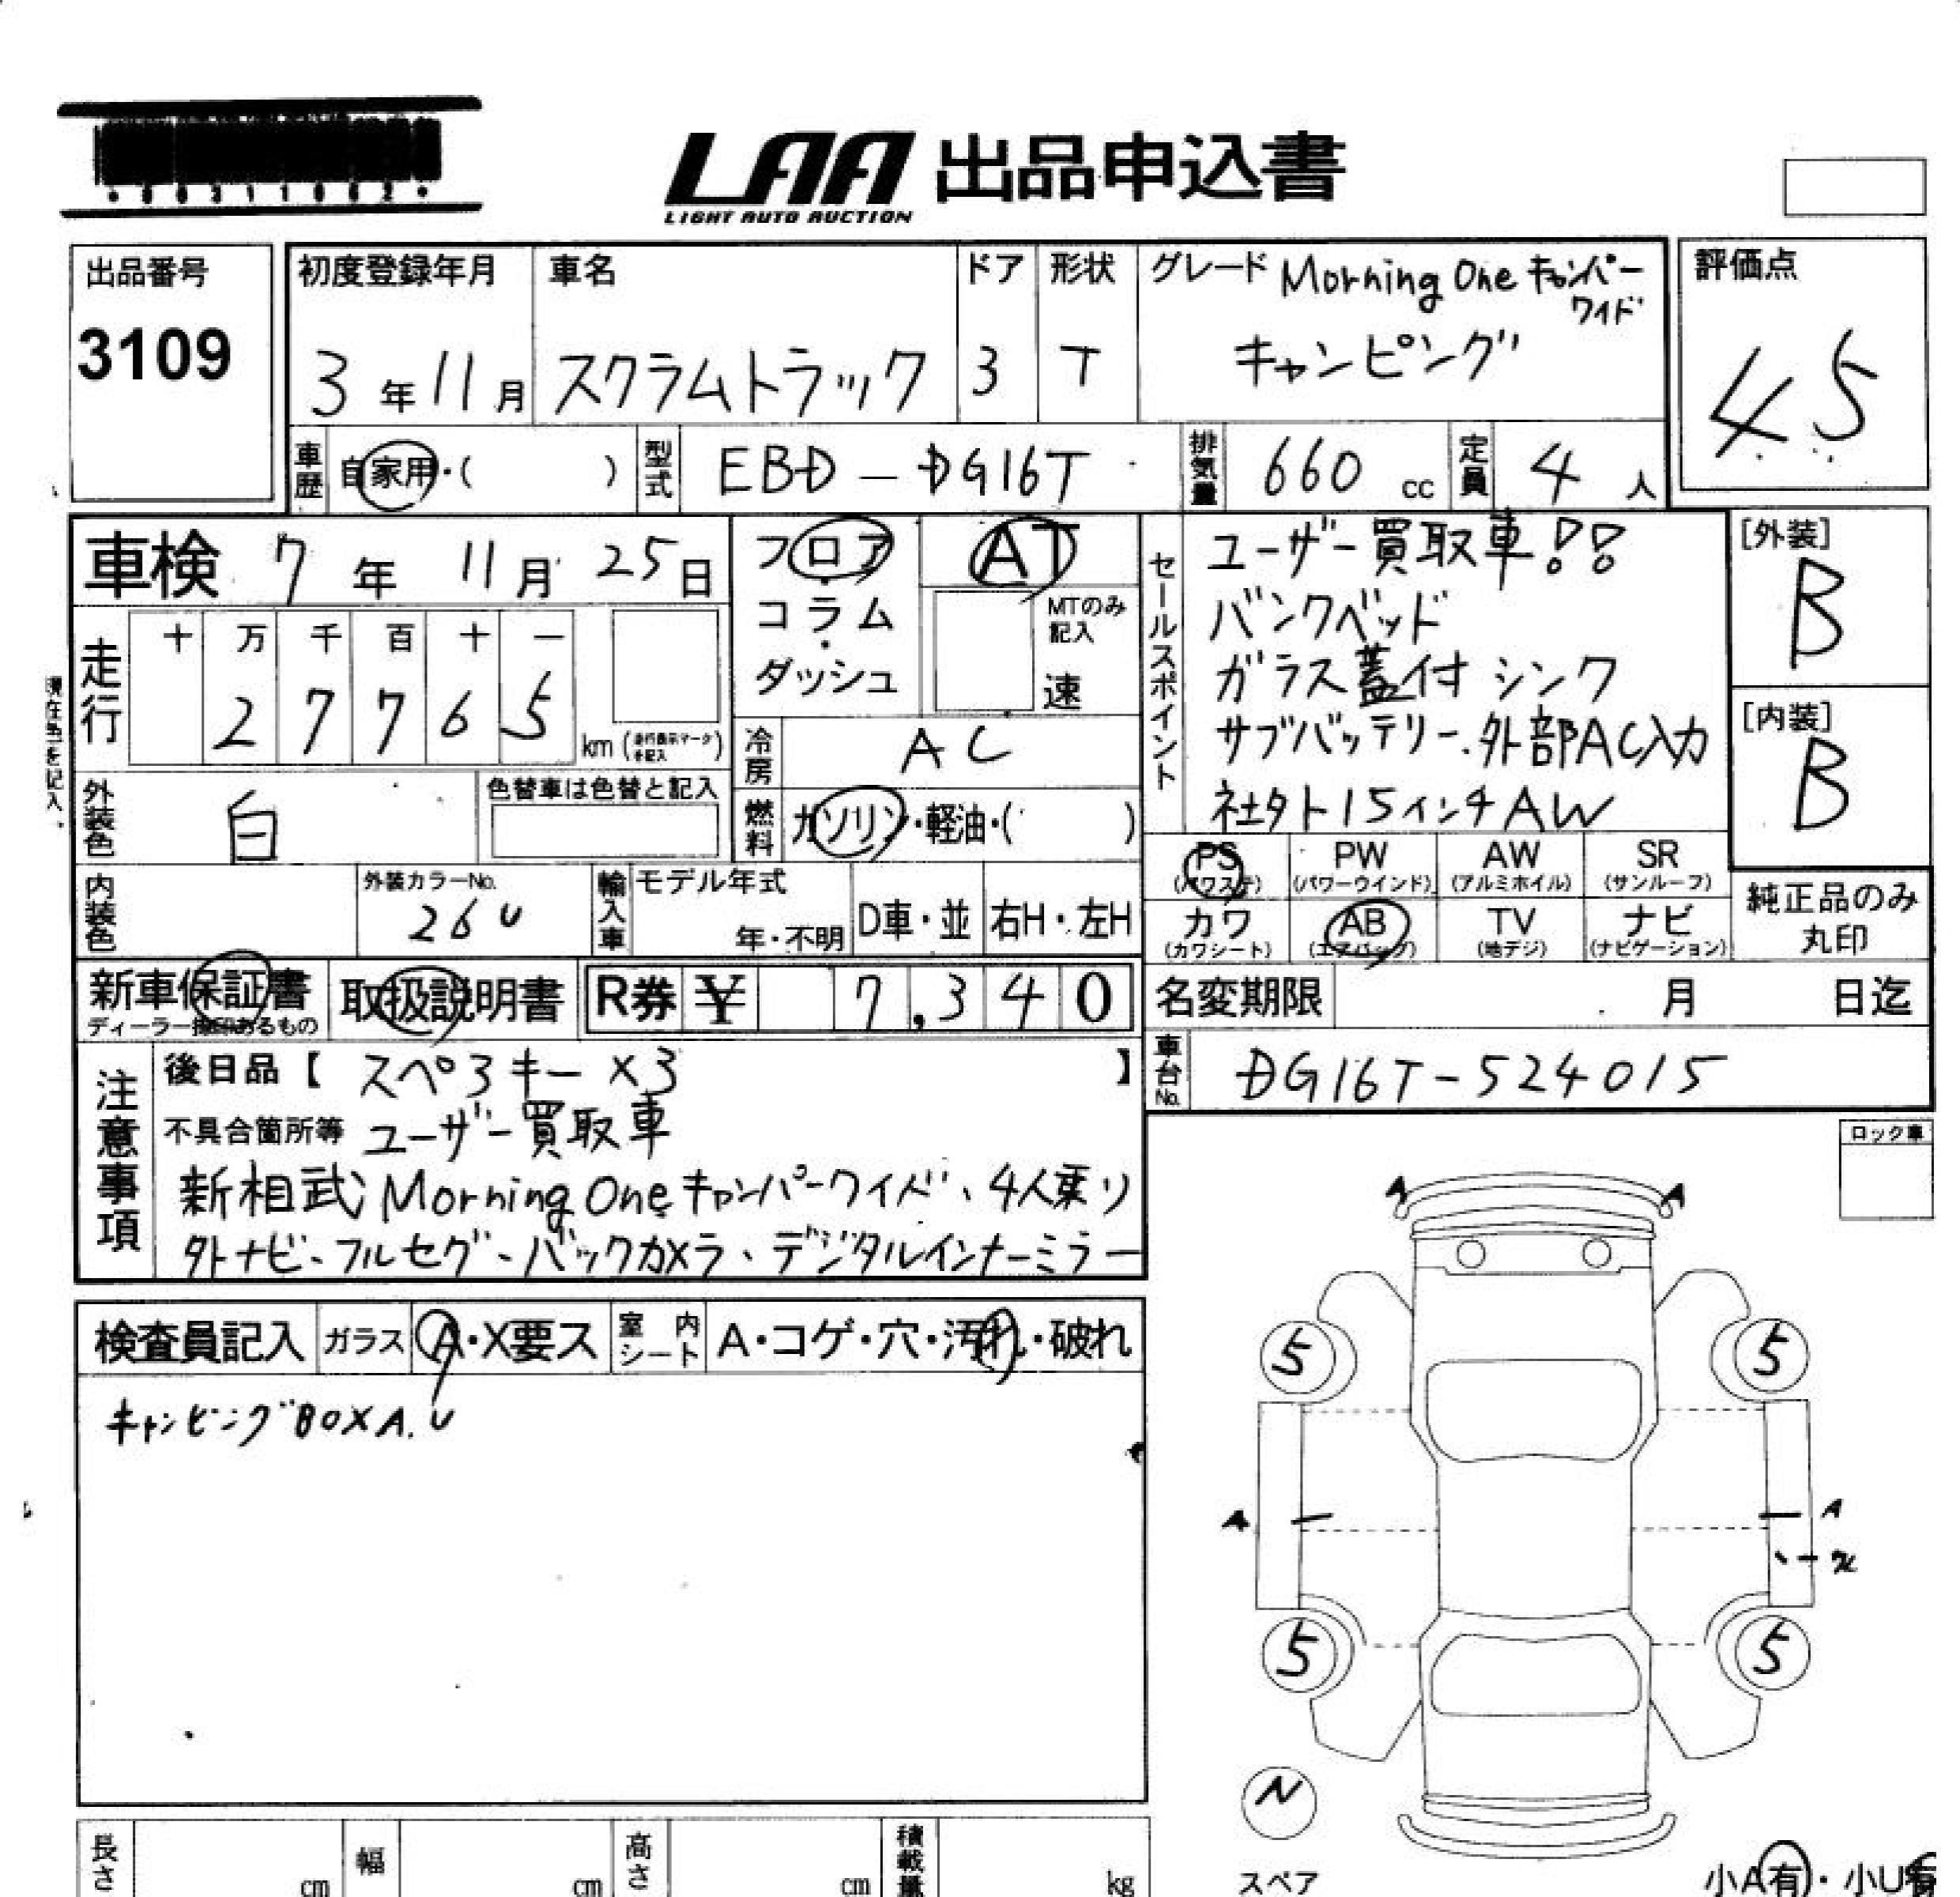 LAA 出品申込書
LIGHT AUTO AUCTION
出品番号
3109
初度登録年月
3年11月
車名
スクラムトラック
ドア
3
形状
T
グレード Morning One キャンパー
ワイド
キャンピング
評価点
4 5
車歴 自家用・( )
型式 EBD-DG16T
排気量 660 cc
定員 4 人
車検 7年 11月 25日
フロア・コラム・ダッシュ
AT
MTのみ記入
速
走行
十 万 千 百 十 一
2 7 7 6 5 km (走行表示マークを記入)
現在色を記入.
冷房 AC
外装色 白
色替車は色替と記入
燃料 ガソリン・軽油・( )
内装色
外装カラーNo.
26U
輸入車 モデル年式
年・不明
D車・並
右H・左H
セールスポイント
ユーザー買取車!!
バンクベッド
ガラス蓋付シンク
サブバッテリー、外部AC入力
社外15インチAW
[外装]
B
[内装]
B
PS
(パワステ)
PW
(パワーウインド)
AW
(アルミホイル)
SR
(サンルーフ)
カワ
(カワシート)
AB
(エアバッグ)
TV
(地デジ)
ナビ
(ナビゲーション)
純正品のみ
丸印
新車保証書
取扱説明書
R券 ¥ 7,340
名変期限 月 日迄
車台No. DG16T-524015
注意事項
後日品【 スペ3キー×3 】
不具合箇所等 ユーザー買取車
新相武 Morning One キャンパーワイド、4人乗り
外ナビ、フルセグ、バックカメラ、デジタルインナーミラー
ロック車
検査員記入
ガラス A・X要ス
室内シート A・コゲ・穴・汚れ・破れ
キャンピングBOXA.U
A A
5 5
A A
5 5
N
スペア
小A有・小U有
長さ cm
幅 cm
高さ cm
積載量 kg